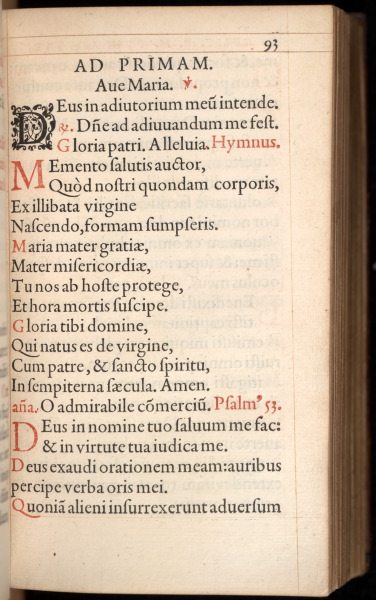 93
AD PRIMAM.
Aue Maria. ℣.
DEus in adiutorium meũ intende.
℟. Dñe ad adiuuandum me fest.
Gloria patri. Alleluia. Hymnus.
MEmento salutis auctor,
Quòd nostri quondam corporis,
Ex illibata virgine
Nascendo, formam sumpseris.
Maria mater gratiæ,
Mater misericordiæ,
Tu nos ab hoste protege,
Et hora mortis suscipe.
Gloria tibi domine,
Qui natus es de virgine,
Cum patre, & sancto spiritu,
In sempiterna sæcula. Amen.
aña. O admirabile cõmerciũ. Psalmꝰ 53.
DEus in nomine tuo saluum me fac:
& in virtute tua iudica me.
Deus exaudi orationem meam: auribus
percipe verba oris mei.
Quoniã alieni insurrexerunt aduersum